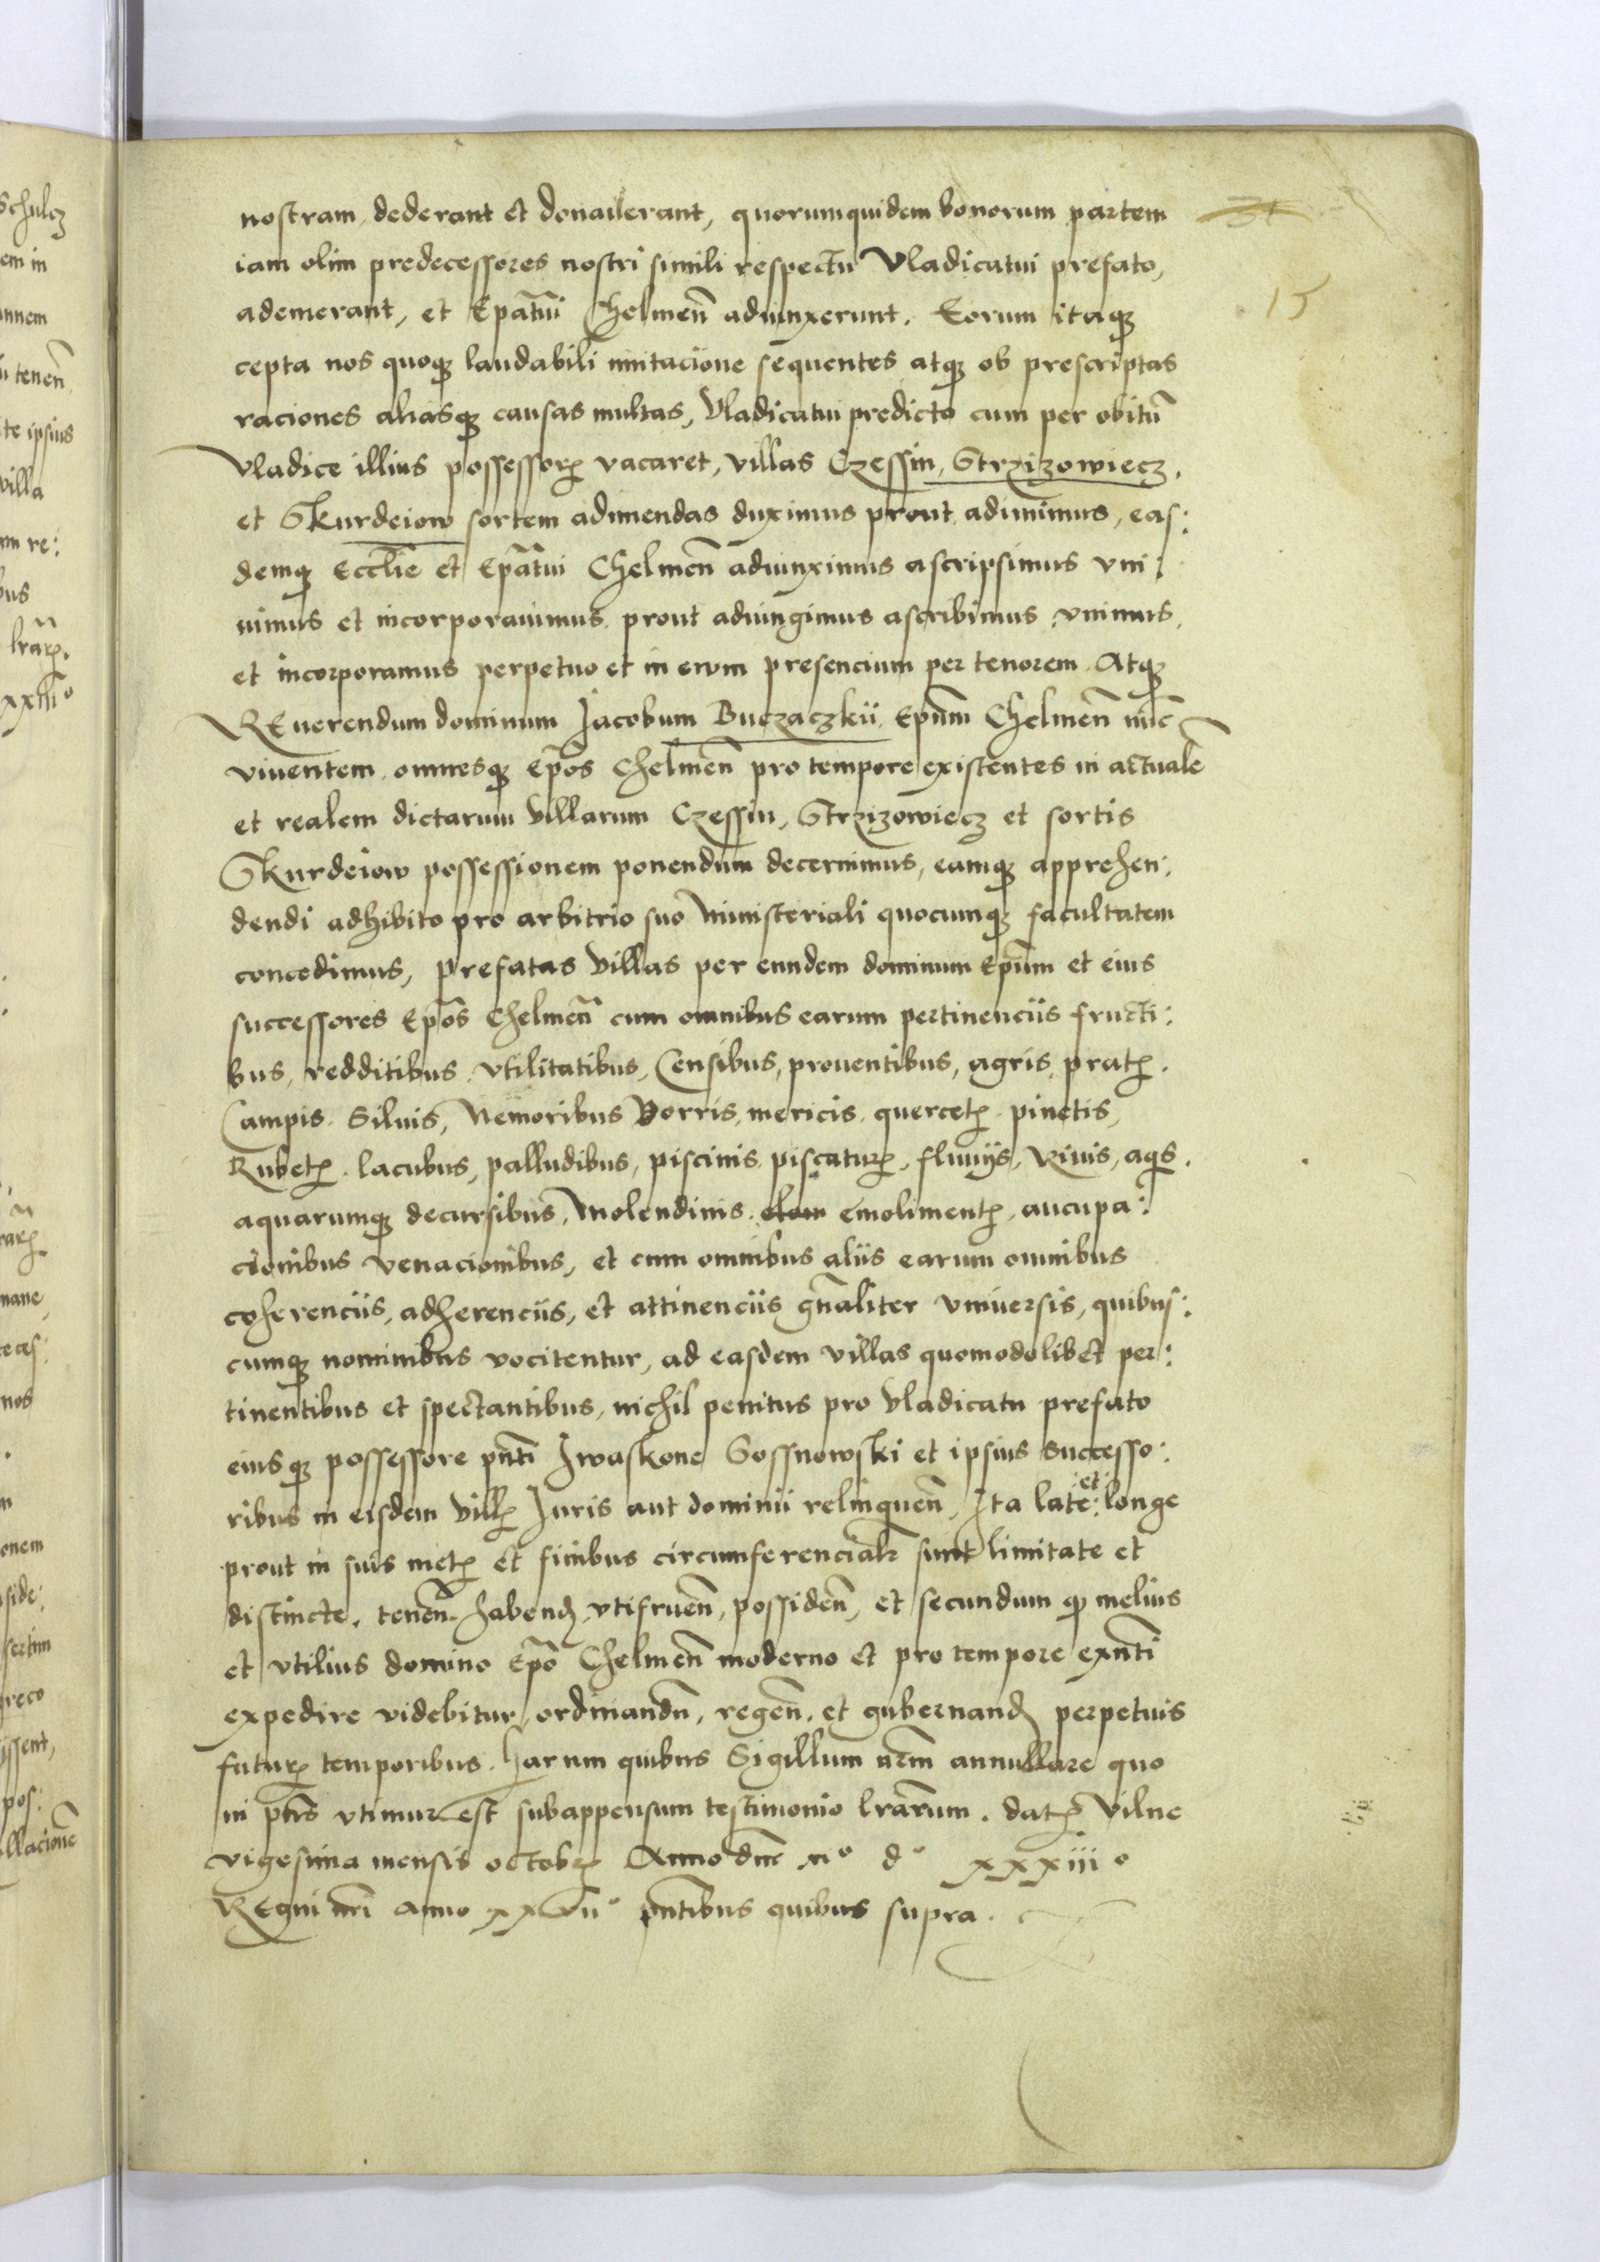 nostram dederant et donauerant, quorumquidem bonorum partem
15
iam olim predecessores nostri simili respectu Vladicatui prefato,
ademerant, et Ep̄atui Chelmeñ adiunxerunt. Eorum itaqꝫ
cepta nos quoqꝫ laudabili imitacione sequentes atqꝫ ob prescriptas
raciones aliasqꝫ causas multas, Vladicatui predicto cum per obitū
Vladice illius possessorꝭ vacaret, villas Czessin, Strzizowiecz,
et Skurdeiow sortem adimendas duximus prout adimimus, eas:
demqꝫ Eccl̄ie et Ep̄atui Chelmeñ adiunximus ascripsimus vni:
uimus et incorporauimus prout adiungimus ascribimus vnimus,
et incorporamus perpetuo et in euum presencium per tenorem. Atqꝫ
REuerendum dominum Jacobum Buczaczkii Ep̄um Chelmeñ nūc
viuentem omnesqꝫ Ep̄os Chelmeñ pro tempore existentes in actualē
et realem dictarum villarum Czessin, Strzizowiecz et sortis
Skurdeiow possessionem ponendum decernimus, eamqꝫ apprehen:
dendi adhibito pro arbitrio suo Ministeriali quocumqꝫ facultatem
concedimus, prefatas villas per eundem dominum Ep̄um et eius
successores Ep̄os Chelmeñ cum omnibus earum pertinenciis fructi:
bus, redditibus, vtilitatibus, Censibus, prouentibus, agris, pratꝭ.
Campis. Siluis, Nemoribus Borris, mericis. quercetꝭ. pinetis,
Rubetꝭ. lacubus, palludibus, piscinis, piscaturꝭ, fluuijs, Riuis, aqis.
aquarumqꝫ decursibus, Molendinis. emolimentꝭ, aucupa:
cionibus venacionibus, et cum omnibus aliis earum omnibus
coherenciis, adherenciis, et attinenciis gn̄aliter vniuersis, quibus:
cumqꝫ nominibus vocitentur, ad easdem villas quomodolibet per:
tinentibus et spectantibus, nichil penitus pro Vladicatu prefato
eiusqꝫ possessore pn̄ti Iwaskone Sossnowski et ipsius Successo:
ribus in eisdem villꝭ Juris aut dominii relinqueñ, Ita late :et: longe
prout in suis metꝭ et finibus circumferencialꝭ sunt limitate et
distincte. teneñ. habendꝭ vtifrueñ, possideñ, et secundum qꝫ melius
et vtilius domino Ep̄o Chelmeñ moderno et pro tempore exn̄ti
expedire videbitur ordinandñ, regeñ, et gubernandꝭ perpetuis
futurꝭ temporibus. Harum quibus Sigillum nr̄m annullare quo
in pn̄tis vtimur est subappensum testimonio lr̄arum. datꝭ Vilne
vigesima mensis octobrꝭ Anno dn̄i mº dº xxxiiiº
REgni nr̄i anno xxviiº pn̄tibus quibus supra.